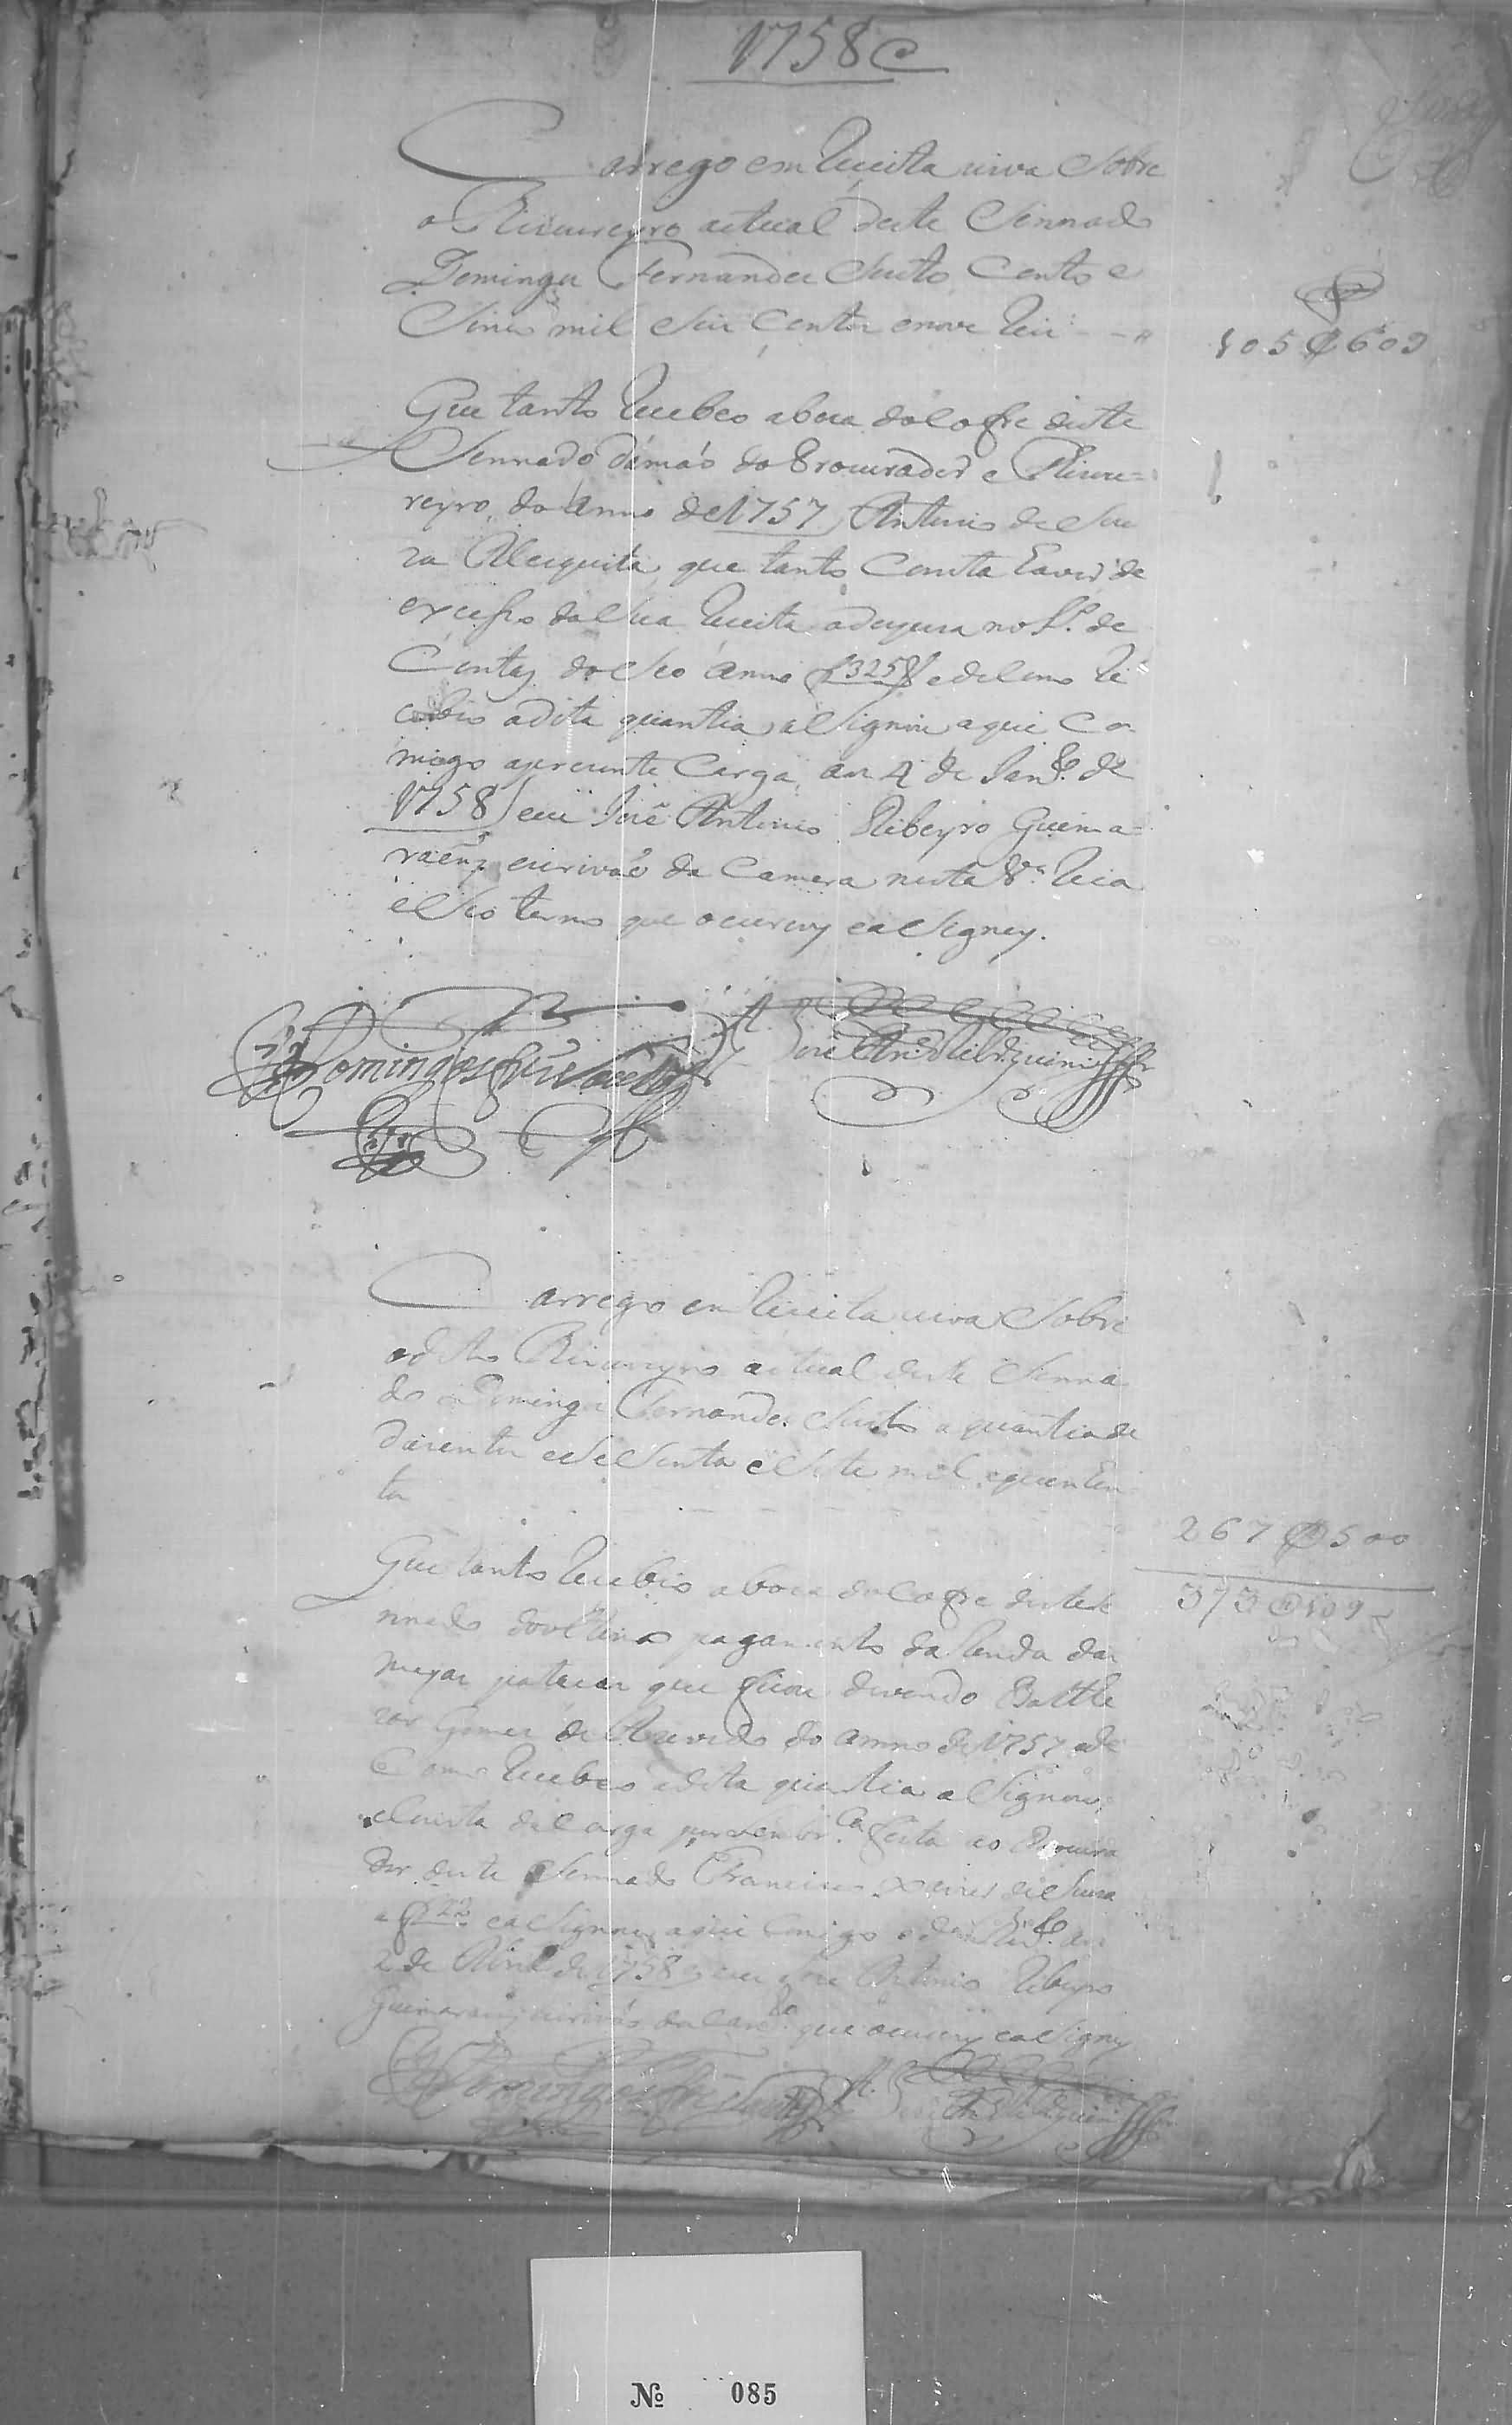 1758
Carrego em Receita viva Sobre
o Thizoureyro actual deste Sennado
Domingos Fernandes Souto Cento e
Sinco mil Seis Centos e nove Reis
105$609
Que tanto Recebeo a boca do Cofre deste
Sennado da mão do Procurador e Thizou=
reyro do anno de 1757 Antonio de Sou
za Mesquita, que tanto Consta haver de
excesso da Sua Receita a despeza no L.º de
Contas do Seo anno f 325 e de Como Re
cebeo a dita quantia aSignou aqui Co
migo a prezente Carga, aos 4 de Janr.º de
1758 e eu José Antonio Ribeyro Guima
raens escrivaõ da Camera nesta V.ª Rica
e Seo termo que o escrevy e aSigney.
Domingos Frz Souto
José Ant.º Rib.º Guim.es
Carrego em Receita viva Sobre
o dito Thizoureyro actual deste Senna
do Domingos Fernandes Souto a quantia de
duzentos e SeSenta e Sete mil e quinhen
tos
267$500
373$109
Que tanto Recebeo a boca do Cofre deste Se
nnado do ultimo pagamento da Renda das
meyas patacas que ficou devendo Balthe
zar Gomes de Azevedo do anno de 1757 e de
Como Recebeo a dita quantia aSignou,
e Consta da Carga por lembr.ça feita ao Procura
dor deste Sennado Francisco Xavier de Souza
a f 22 e aSignou aqui Comigo o d.º Thiz.º aos
2 de Abril de 1758 e eu José Antonio Ribeyro
Guimaraens escrivaõ da Cam.ª que o escrevy e aSigney
Domingos Frz Souto
José Ant.º Rib.º Guim.es
Nº 085